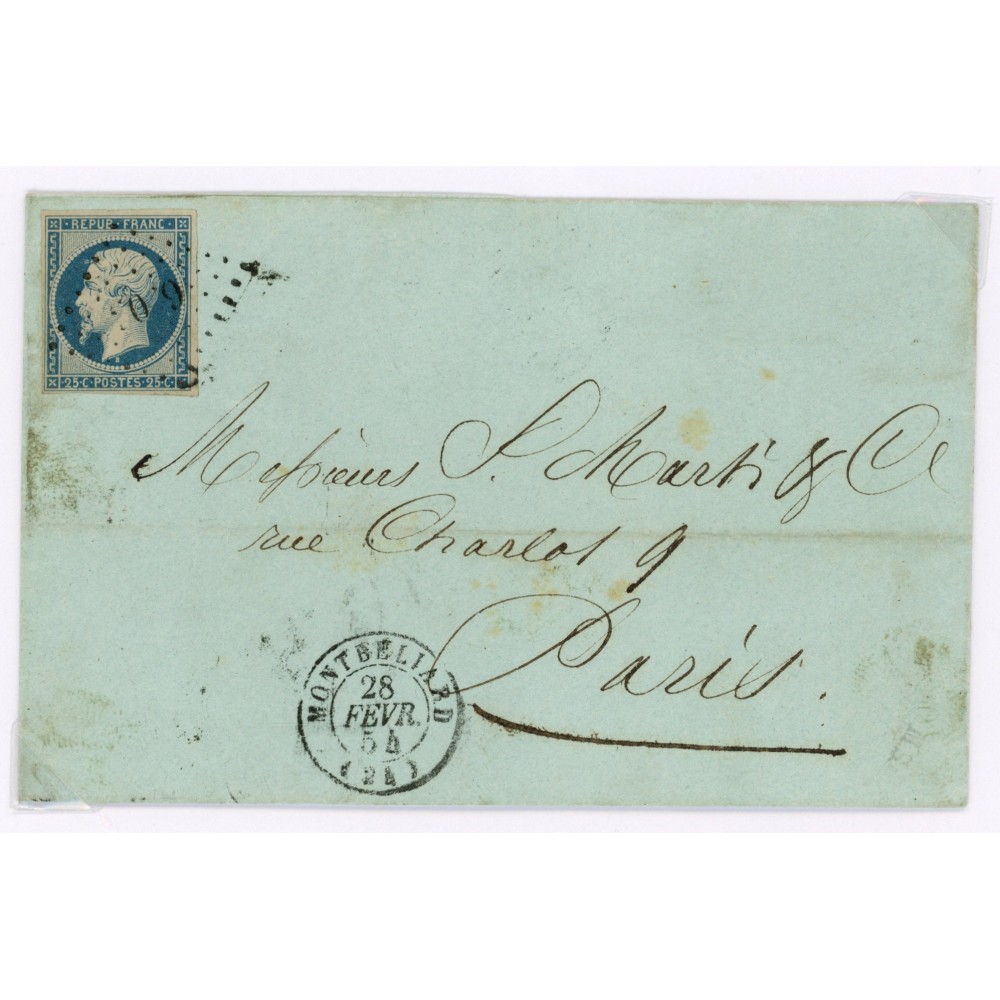 REPUB·FRANC·
25·C·POSTES·25·C·
Messieurs S. Marti & Cie
rue Charlot 9
Paris.
MONTBÉLIARD
28
FEVR.
54
(24)